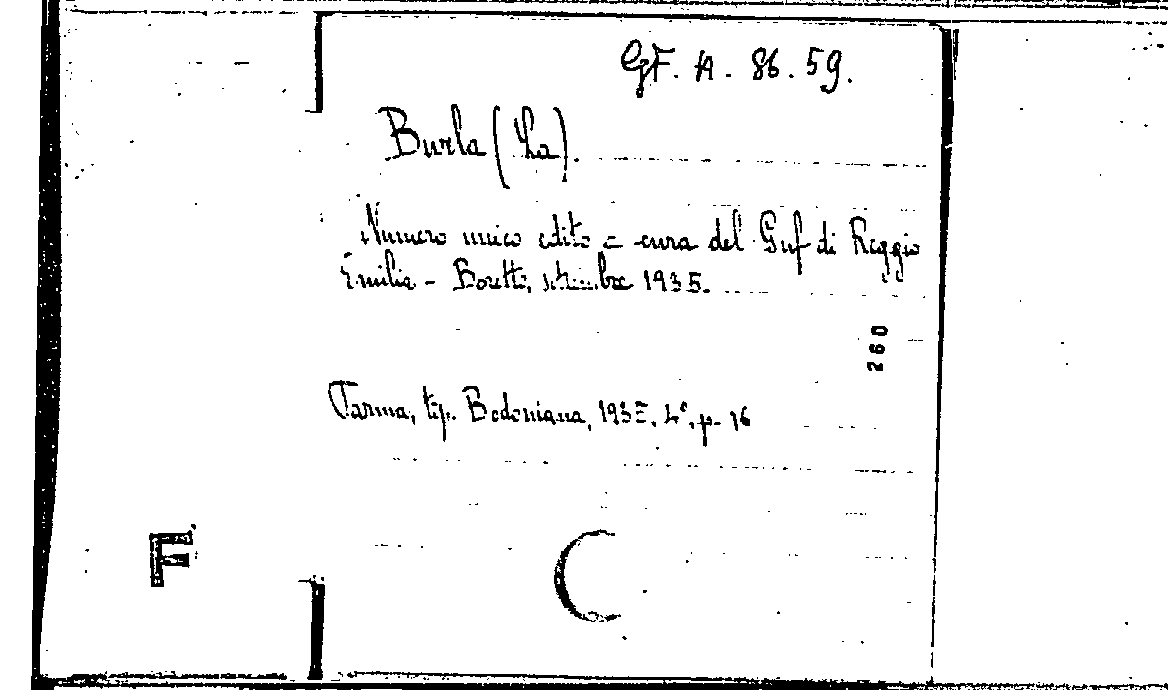 GF. A. 86. 59.
Burla (La).
Numero unico edito a cura del Guf di Reggio
Emilia - Boretto, settembre 1935.
260
Parma, tip. Bodoniana, 1935. 4°. p. 16
F